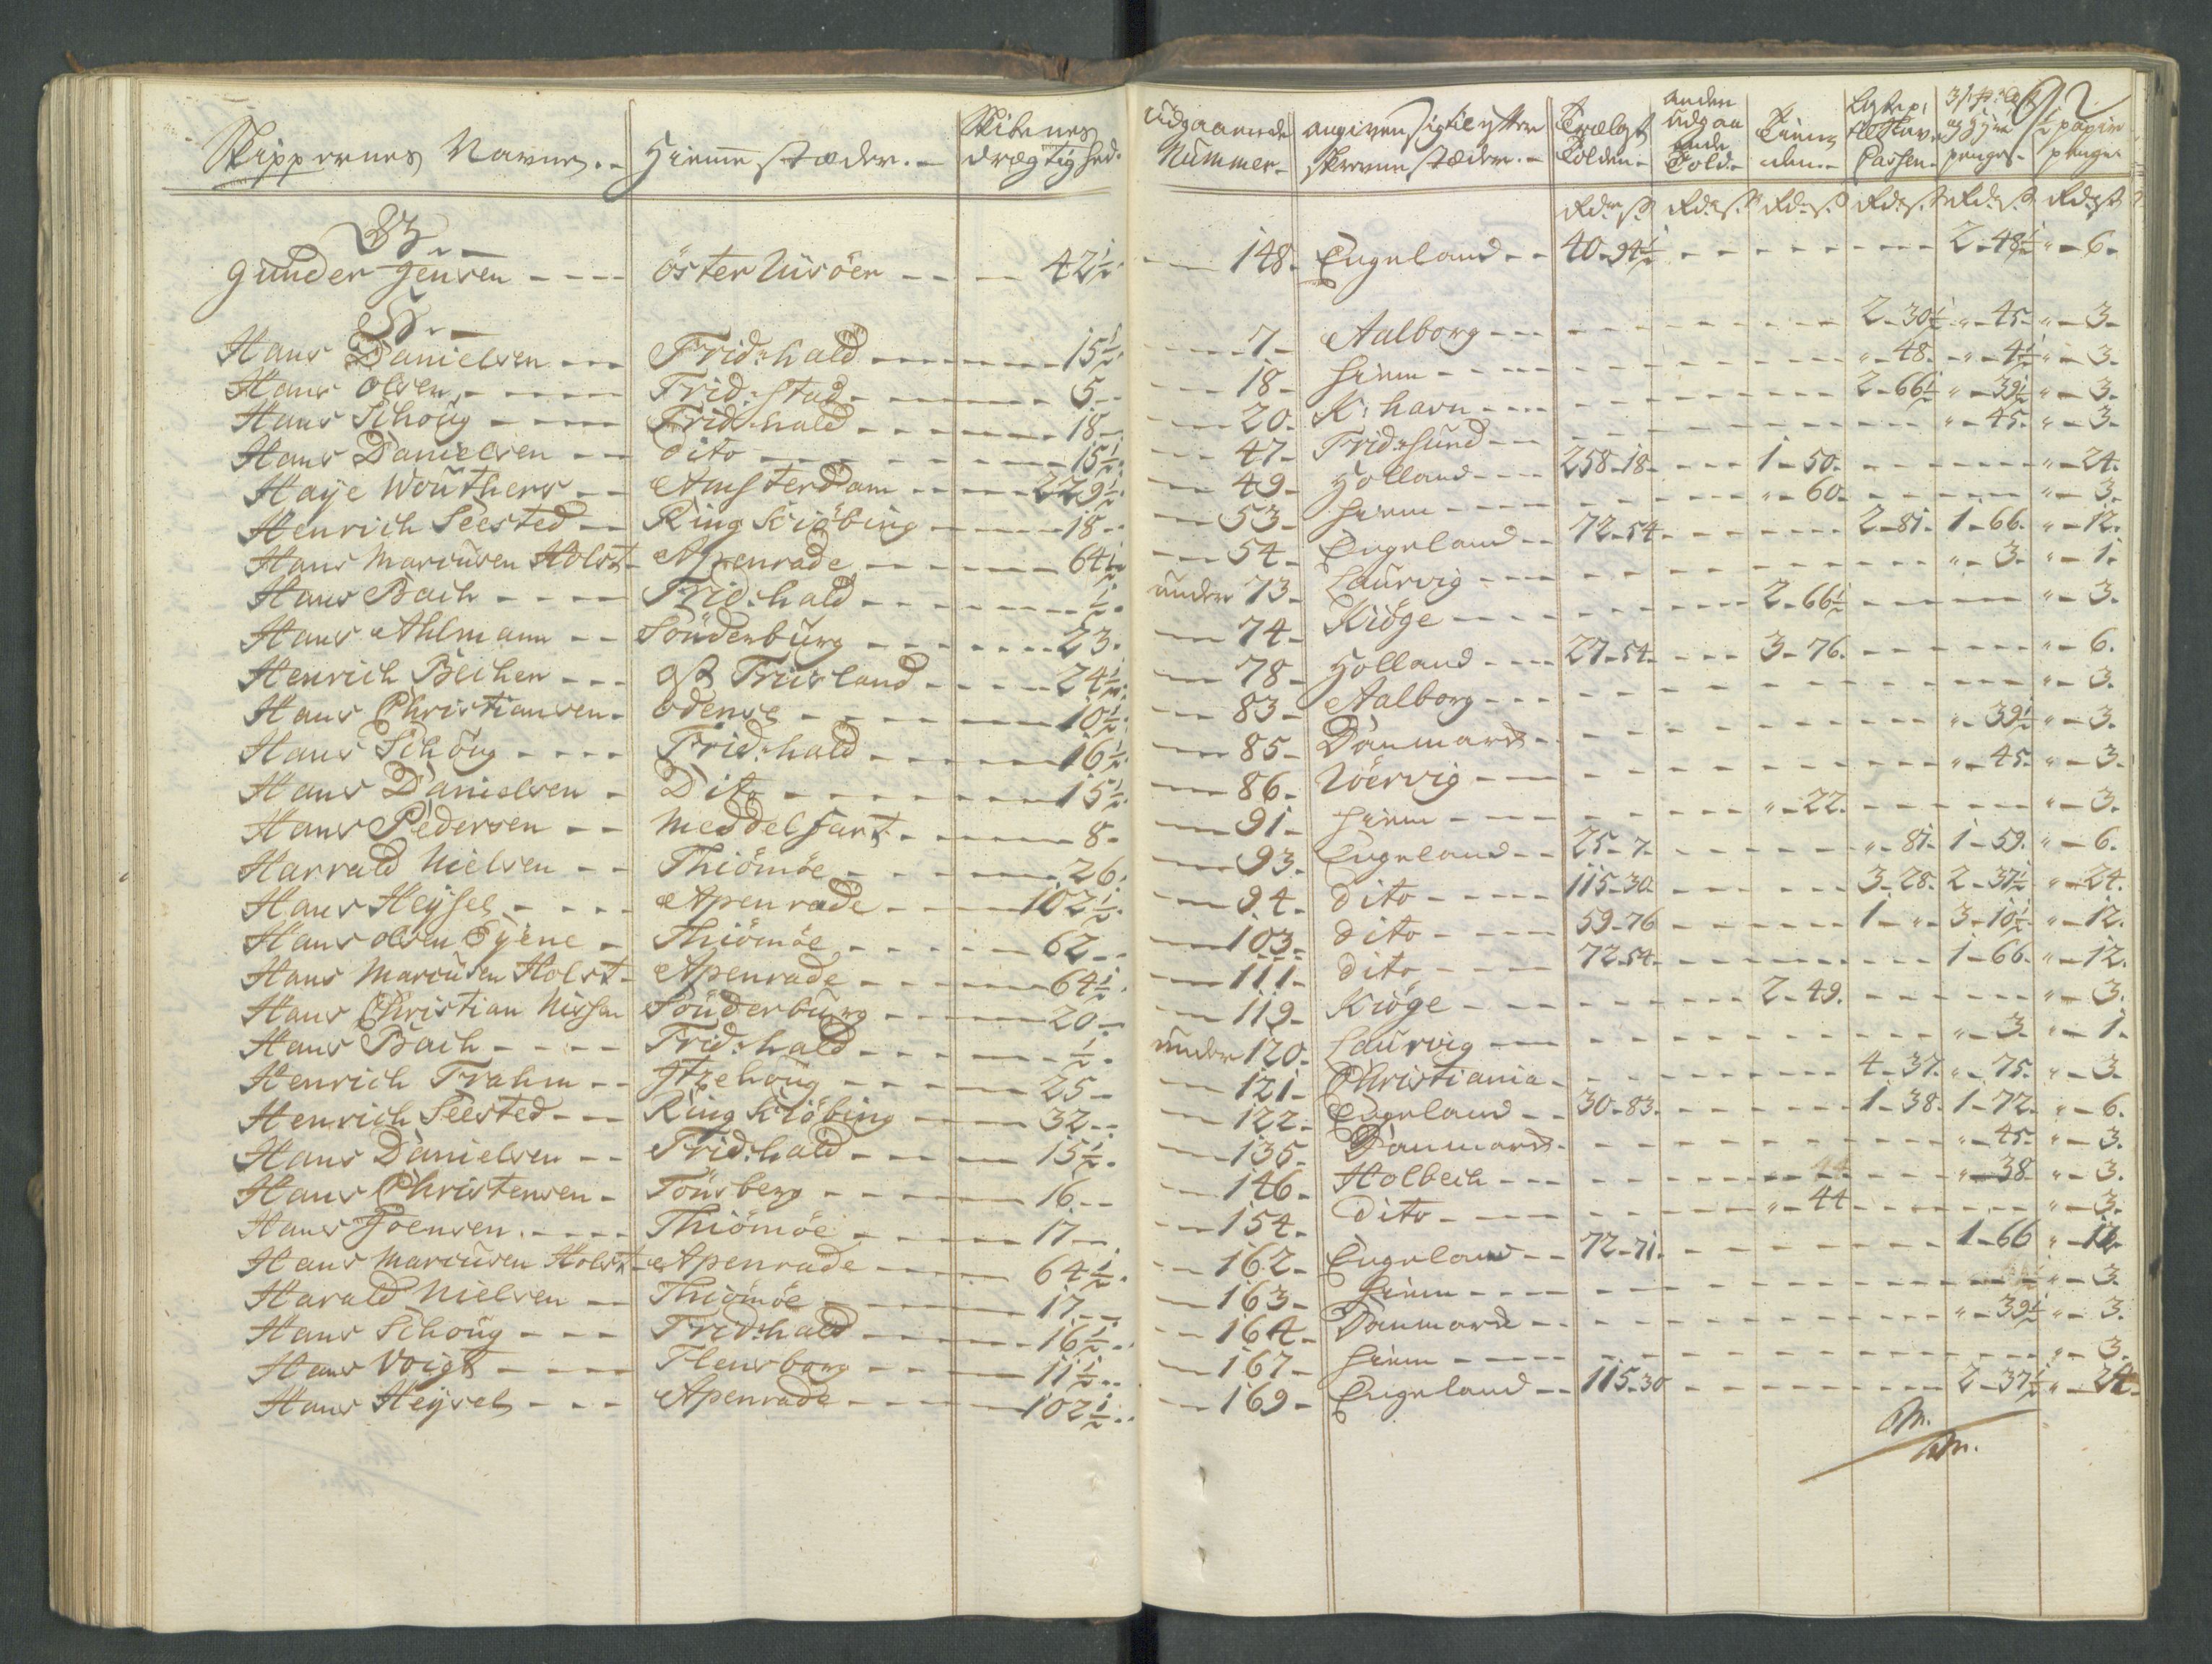 Skippernes Navne. Hiemme stæder. Skibenes drægtighed. Udgaaende Nummer. angiven sig til ytter Trælast Tolden. anden udgaaende Told. Tienden. Cassen. penge. papiir penge.
Rd. s. Rd. s. Rd. s. Rd. s. Rd. s. Rd. s.
G.
Gunder Jensen öster Riisöer 42½. 148. Engeland 40-94½ 2-48½ "-6.
H.
Hans Danielsen Frid:hald 15½. 7 Aalborg 2-30½ "-45. "-3.
Hans Olsen Frid:stad 5. 18 hiem "-48. "-4½ "-3.
Hans Schoug Frid:hald 18. 20 K:havn 2-66½ "-39½ "-3.
Hans Danielsen dito 15½. 47 Frid:sund "-45. "-3.
Haye Wouthers Amsterdam 229½. 49 Holland 258-18. 1-50. "-24.
Henrich Seested Ring Kiöbing 18. 53 hiem "-60. "-3.
Hans Marcusen Holst Apenrade 64½ 54 Engeland 72-54. 2-81. 1-66. "-12.
Hans Bach Frid:hald ½. under 73 Laurvig "-3. "-1.
Hans Ahlmann Sönderburg 23. 74 Kiöge 2-66½ "-3.
Henrich Becher Ost Friisland 24½. 78 Holland 27-54. 3-76. "-6.
Hans Christiansen Odense 10½. 83 Aalborg "-3.
Hans Schoug Frid:hald 16½. 85 Danmark "-39½ "-3.
Hans Danielsen Dito 15½. 86 Röervig "-45. "-3.
Hans Pedersen Meddelfart 8. 91 hiem "-22. "-3.
Harrald Nielsen Thiömöe 26. 93. Engeland 25-7. "-81. 1-59. "-6.
Hans Heysel Apenrade 102½. 94 dito 115-30. 3-28. 2-37½ "-24.
Hans Olsen Eyene Thiömöe 62. 103 dito 59-76 1-". 3-10½ "-12.
Hans Marcusen Holst Apenrade 64½. 111 dito 72-54. 1-66. "-12.
Hans Christian Nissen Sönderburg 20. 119 Kiöge 2-49. "-3.
Hans Bach Frid:hald ½. under 120 Laurvig "-3. "-1.
Henrich Frahm Itzehoug 25 121 Christiania 4-37. "-75. "-3.
Henrich Seested Ring Kiöbing 32. 122 Engeland 30-83. 1-38. 1-72. "-6.
Hans Danielsen Frid:hald 15½. 135 Danmark "-45. "-3.
Hans Christensen Tönsberg 16. 146 Holbech "-38 "-3.
Hans Joensen Thiömöe 17 154 dito "-44 "-3.
Hans Marcusen Holst Apenrade 64½. 162 Engeland 72-71. 1-66 "-12
Harald Nielsen Thiömöe 17 163 hiem "-3.
Hans Schoug Frid:hald 16½. 164 Danmark "-39½ "-3.
Hans Voigt Flensborg 11½. 167 hiem "-3.
Hans Heysel Apenrade 102½. 169 Engeland 115-30 2-37½ "-24.